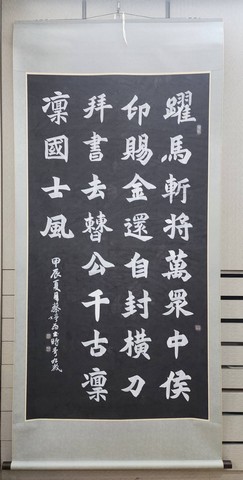 躍馬斬將萬眾中侯
印賜金還自封橫刀
拜書去曹公千古凜
凜國士風
甲辰夏月